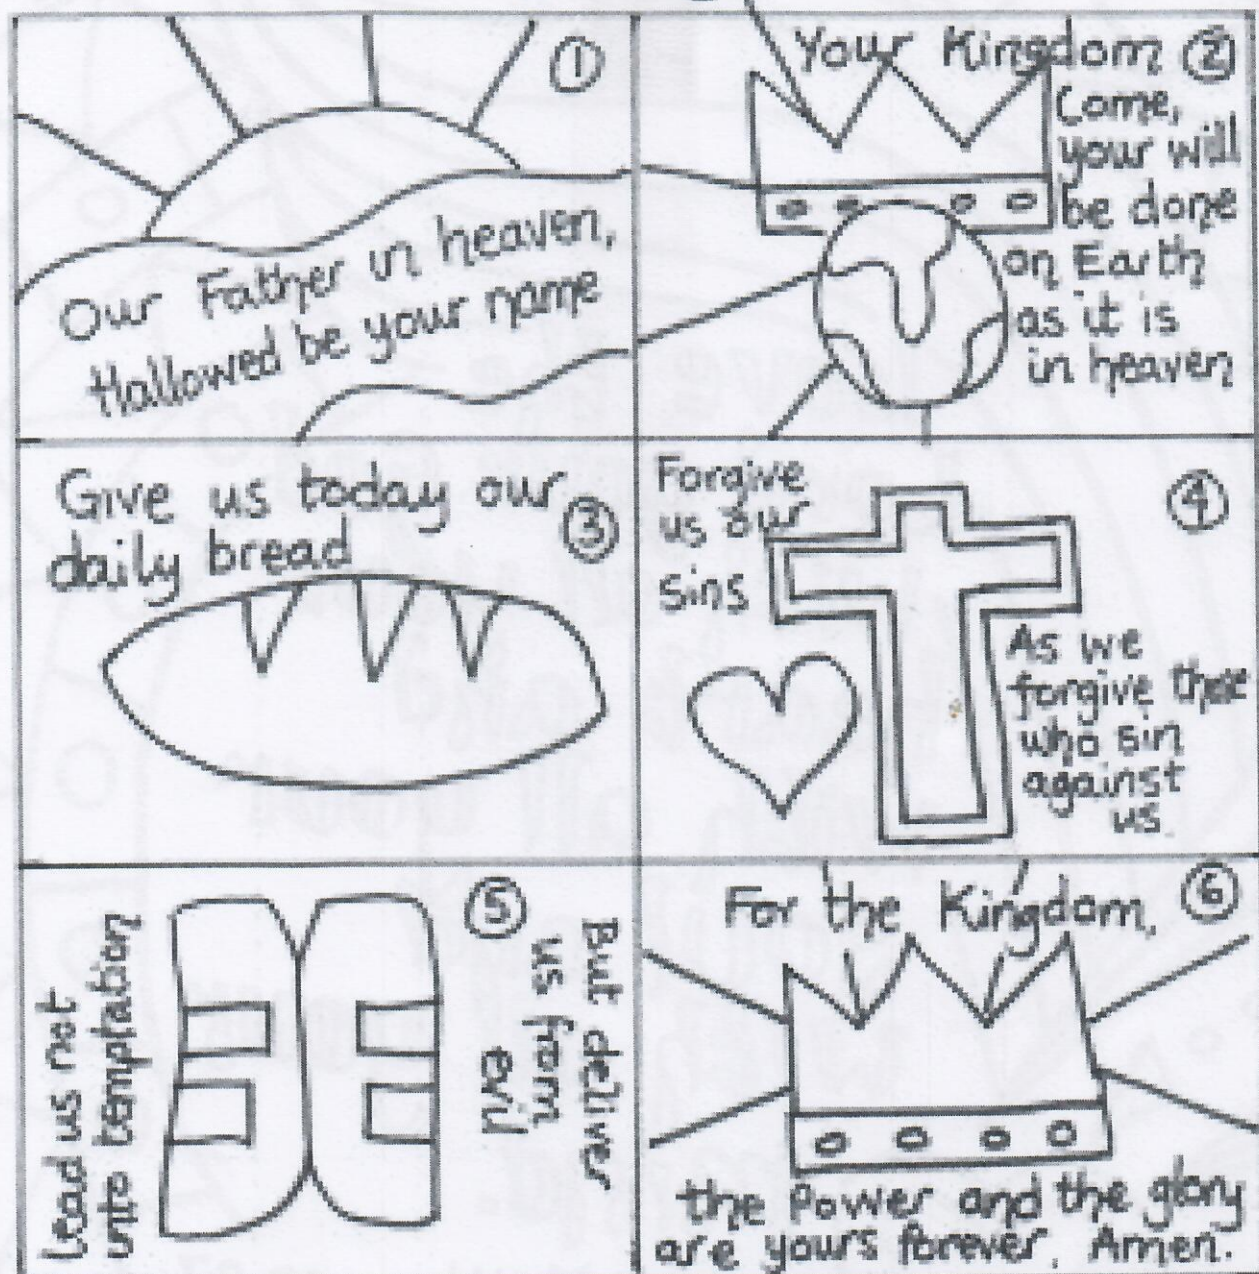 ①
Our Father in heaven,
Hallowed be your name
Your Kingdom ②
Come,
your will
be done
on Earth
as it is
in heaven
Give us today our
daily bread
③
Forgive
us our
sins
④
As we
forgive those
who sin
against
us.
Lead us not
into temptation
⑤
But deliver
us from
evil
For the Kingdom, ⑥
the Power and the glory
are yours forever, Amen.